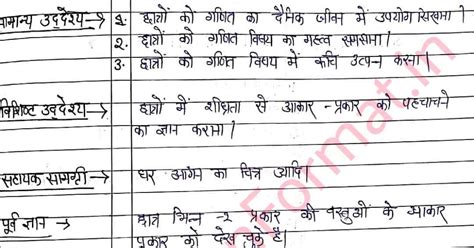 सामान्य उद्देश्य → 1. छात्रों को गणित का दैनिक जीवन में उपयोग सिखाना।
2. छात्रों को गणित विषय का महत्व समझाना।
3. छात्रों को गणित विषय में रूचि उत्पन करना।
विशिष्ट उद्देश्य → छात्रों में शीघ्रता से आकार - प्रकार को पहचानने
का ज्ञान कराना।
सहायक सामग्री → घर आंगन का चित्र आदि।
पूर्व ज्ञान → छात्र भिन्न -२ प्रकार की वस्तुओं के आकार
प्रकार को देख चुके है।
Format.in